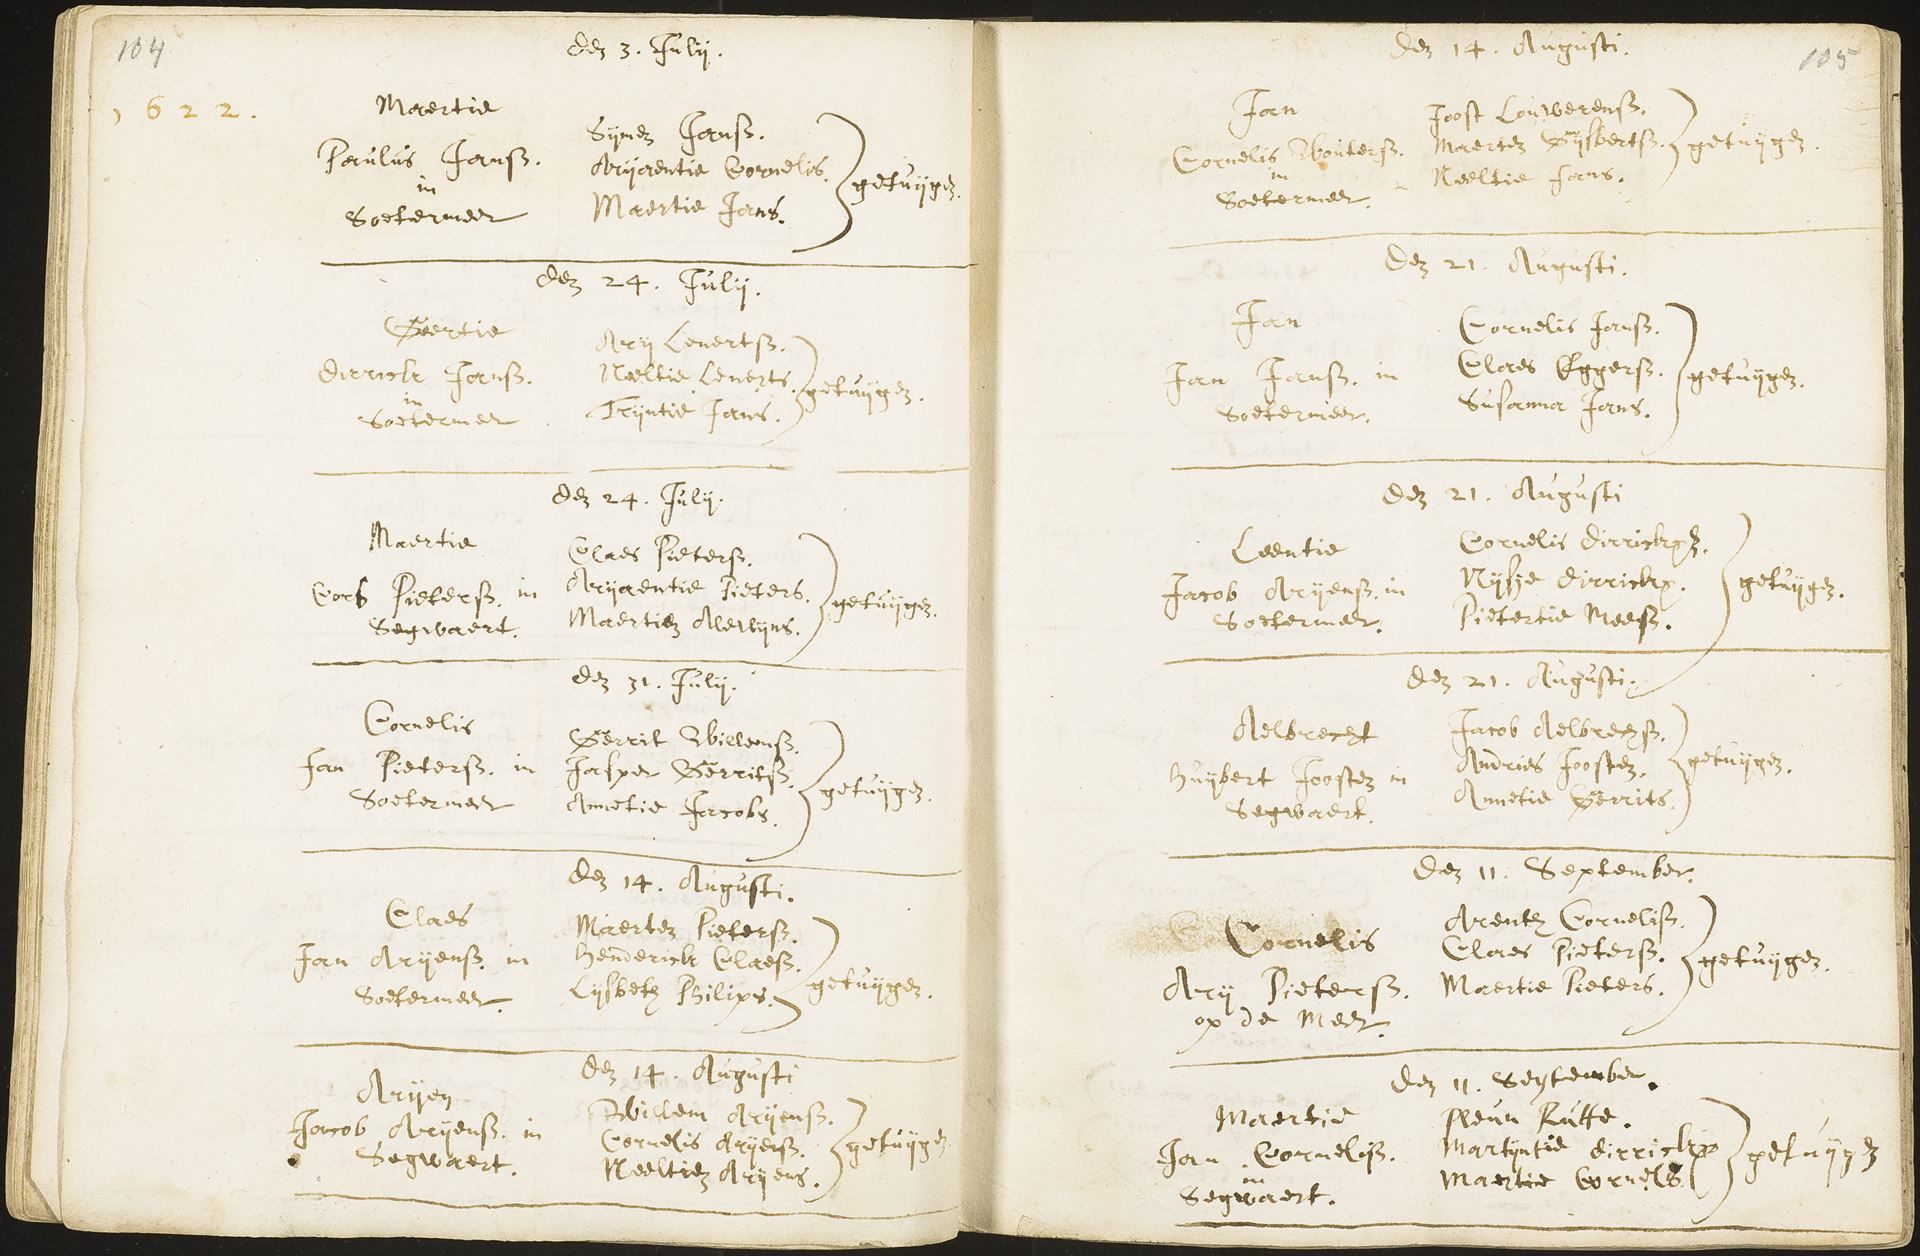 104
1622.
den 3. Julij.
Maertie
Paulus Jansz.
in
Soetermeer
Symen Jansz.
Arijaentie Cornelis.
Maertie Jans.
getuijgen.
den 24. Julij.
Geertie
Dirrick Jansz.
in
Soetermeer
Arij Lenertsz.
Neeltie Lenerts.
Trijntie Jans.
getuijgen.
den 24. Julij.
Maertie
Cors Pietersz. in
Segwaert.
Claes Pietersz.
Arijaentie Pieters.
Maertien Alewijns.
getuijgen.
den 31. Julij.
Cornelis
Jan Pietersz. in
Soetermeer
Gerrit Willemsz.
Jasper Gerritsz.
Annetie Jacobs.
getuijgen.
den 14. Augusti.
Claes
Jan Arijensz. in
Soetermeer.
Maerten Pietersz.
Henderick Claesz.
Lijsbeth Philips.
getuijgen.
den 14. Augusti
Arijen
Jacob Arijensz. in
Segwaert.
Willem Arijensz.
Cornelis Arijensz.
Neeltien Arijens.
getuijgen
105
den 14. Augusti.
Jan
Cornelis Woutersz.
in
Soetermeer.
Joost Louwerensz.
Maerten Gijsbertsz.
Neeltie Jans.
getuijgen.
den 21. Augusti.
Jan
Jan Jansz. in
Soetermeer.
Cornelis Jansz.
Claes Eggersz.
Susanna Jans.
getuijgen.
den 21. Augusti
Leentie
Jacob Arijensz. in
Soetermeer.
Cornelis Dirrickxz.
Dirrickx.
Pietertie Meesz.
getuijgen.
den 21. Augusti.
Aelbrecht
Huijbert Joosten in
Segwaert.
Jacob Aelbrechsz.
Andries Joosten.
Annetie Gerrits.
getuijgen.
den 11. September.
Cornelis
Arij Pietersz.
op de Meer.
Arent Cornelisz.
Claes Pietersz.
Maertie Pieters.
getuijgen.
den 11. September.
Maertie
Jan Cornelisz.
in
Segwaert.
Pleun
Martijntie Dirrickx
Maertie Cornelis
getuijgen